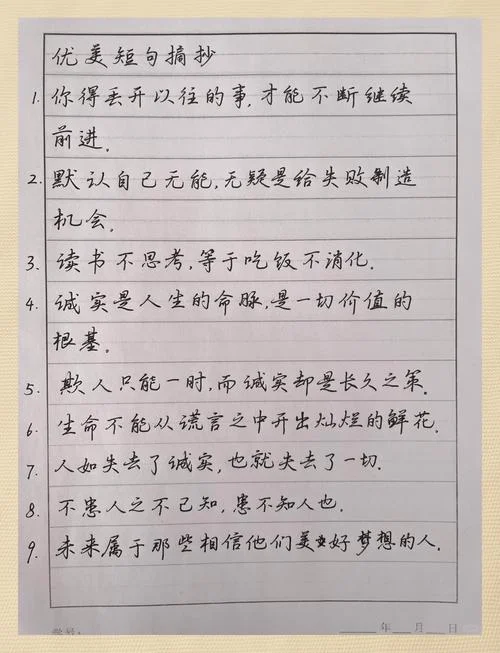 优美短句摘抄
1. 你得丢开以往的事,才能不断继续
前进.
2. 默认自己无能,无疑是给失败制造
机会.
3. 读书不思考,等于吃饭不消化.
4. 诚实是人生的命脉,是一切价值的
根基.
5. 欺人只能一时,而诚实却是长久之策.
6. 生命不能从谎言之中开出灿烂的鲜花.
7. 人如失去了诚实,也就失去了一切.
8. 不患人之不己知,患不知人也.
9. 未来属于那些相信他们美好梦想的人.
年 月 日